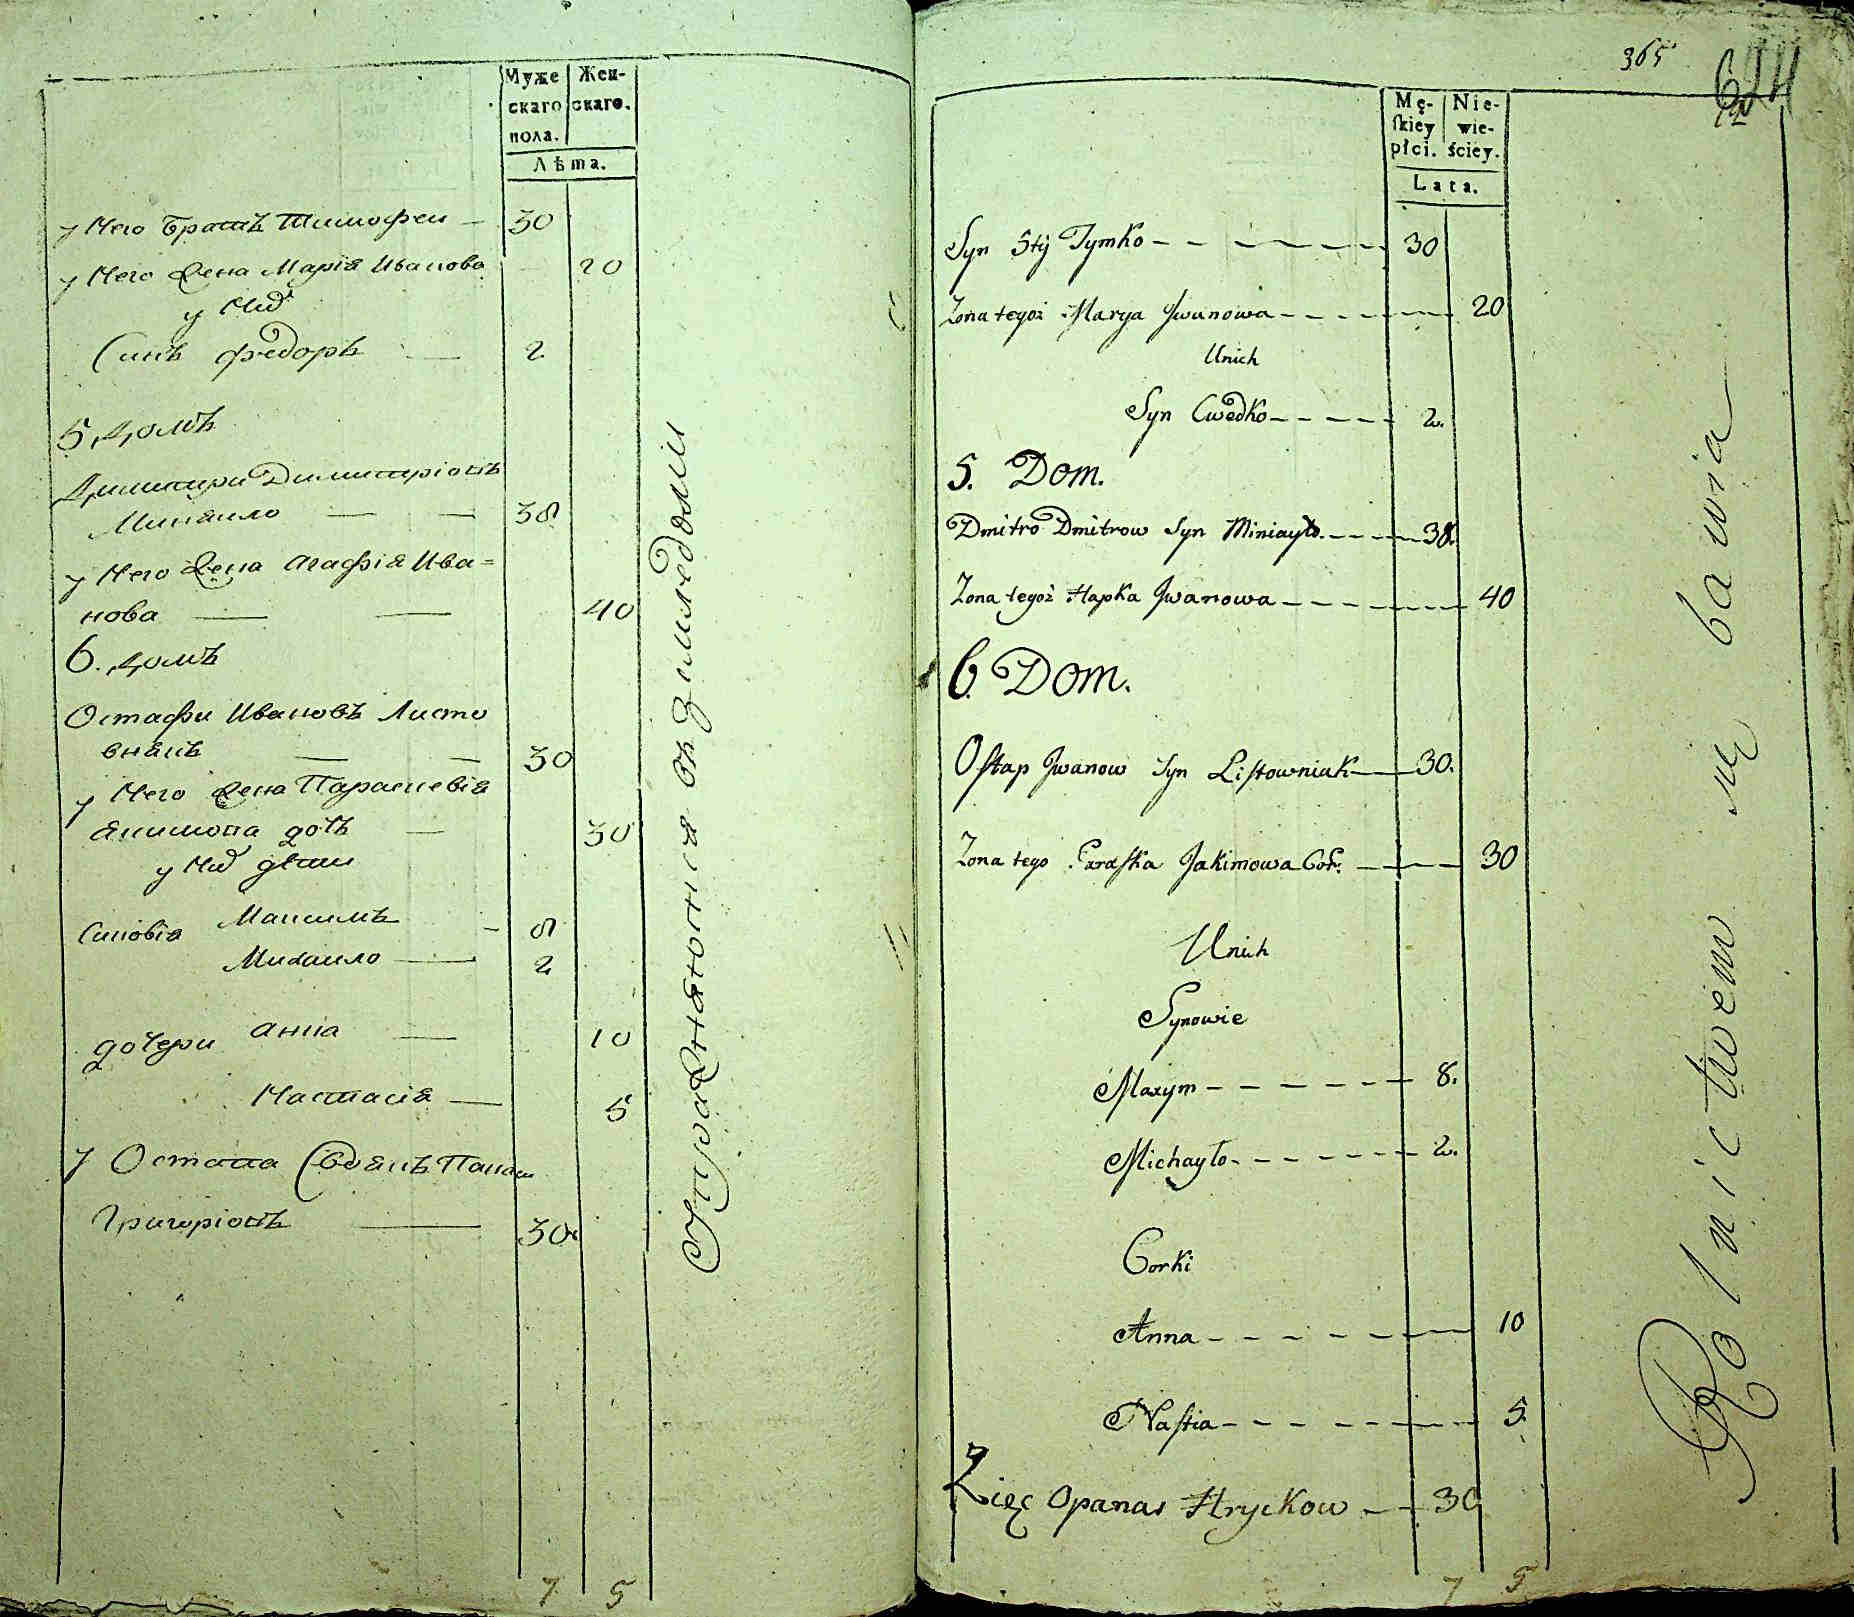 Муже
скаго
пола.
Жен-
скаго.
Лѣта.
у Него Братъ Тимофеи — 30
у Него Жена Марія Иванова 20
у Них
Синъ Федоръ — 2
5 домъ
Димитри Димитріовъ
Миняило — — 38
у Него Жена Агафія Ива=
нова — — 40
6. домъ
Остафи Ивановъ Листо
внякъ — — 30
у Него Жена Параскевія
Якимова дочь — 30
у Них дѣти
Синовія Максимъ — 8
Михаило — 2
дочери Анна — 10
Настасія — 5
У Остапа Панас
Григоріовъ — 30.
7 5
Упражняются въ земледѣлии
365
Mę-
skiey
płci.
Nie-
wie-
ściey.
Lata.
Syn 5ty Tymko — — — — — 30
Zona tegoż Marya Jwanowa — — — — 20
Unich
Syn Cwedko — — — — 2.
5. Dom.
Dmitro Dmitrow Syn Miniayło. — — — 38.
Zona tegoż Hapka Jwanowa — — — — 40
6. Dom.
Ostap Jwanow Syn Listowniak — 30.
Zona tego Paraska Jakimowa Cor. — — 30
Unich
Synowie
Maxym — — — — — 8.
Michayło — — — — — 2.
Corki
Anna — — — — — 10
Nastia — — — — — 5.
Zięć Opanas Hryckow — — 30
7 5
Rolnictwem się bawia